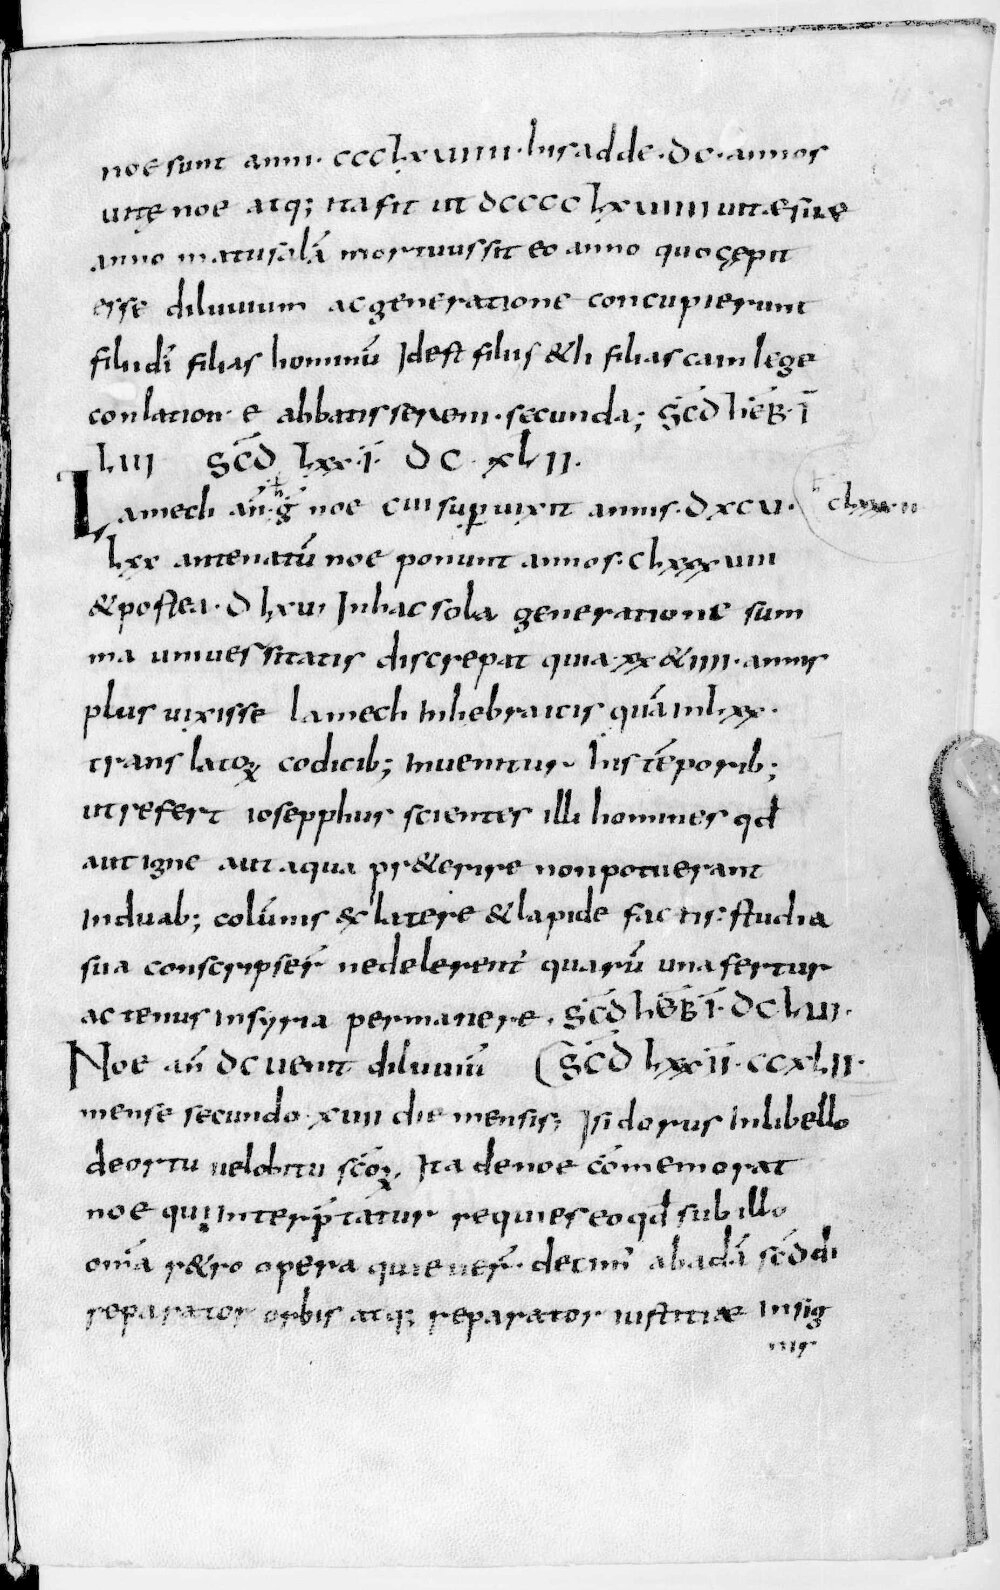 noe sunt anni · ccclxviiii · his adde · dc · annos
uitę noe atq; ita fit ut dcccclxviiii uitæ suæ
anno matusalā mortuus sit eo anno quo cępit
esse diluuium ac generatione concupierunt
filii dī filias hominū Id est filius & h filias cain lege
conlation· e abbatis sereni · secunda; Sc̄d hēƀ · ī
lvii sc̄d lxx · ī · dc · xlii ·
Lamech an̄ · ḡ noe cui superuixit annis · dxcv · clxxxii
lxx ante natū noe ponunt annos · clxxxviii
& postea · dlxv In hac sola generatione sum
ma uniuersitatis discrepat quia · xx & iiii · annis
plus uixisse lamech In hebraicis quā In lxx ·
translatoꝝ codicib; Inuenitur his tēporib;
ut refert iosepphus scientes illi homines qd̄
aut igne aut aqua pr&erire non potuerant
In duab; colūnis &x latere & lapide factis · studia
sua conscripser̄ ne delerent̄ quarū una fertur
actenus In syria permanere . Sc̄d hēƀ ī · dclvi ·
Noe an̄ dc uenit diluuiū Sc̄d lxx īī · ccxlii ·
mense secundo · xvii die mensis; Isidorus In libello
de ortu uel obitu sc̄oꝝ . Ita de noe cōmemorat
noe qui Interp̄tatur requies eo qd̄ sub illo
om̄ia r&ro opera quieuer̄ · decim̄ ab adā sc̄d di
reparator orbis atq; reparator iustitiæ Insig
nis